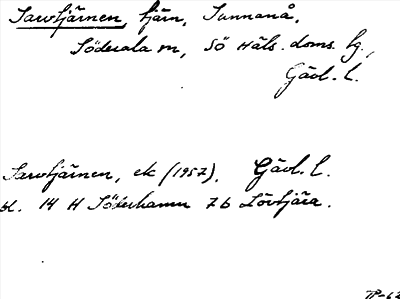 Sarvtjärnen, tjärn, Sunnanå,
Söderala sn, Sö Häls. doms. tg.,
Gävl. l.
Sarvtjärnen, ek (1957). Gävl. l.
bl. 14 H Söderhamn 7b Lövtjära.